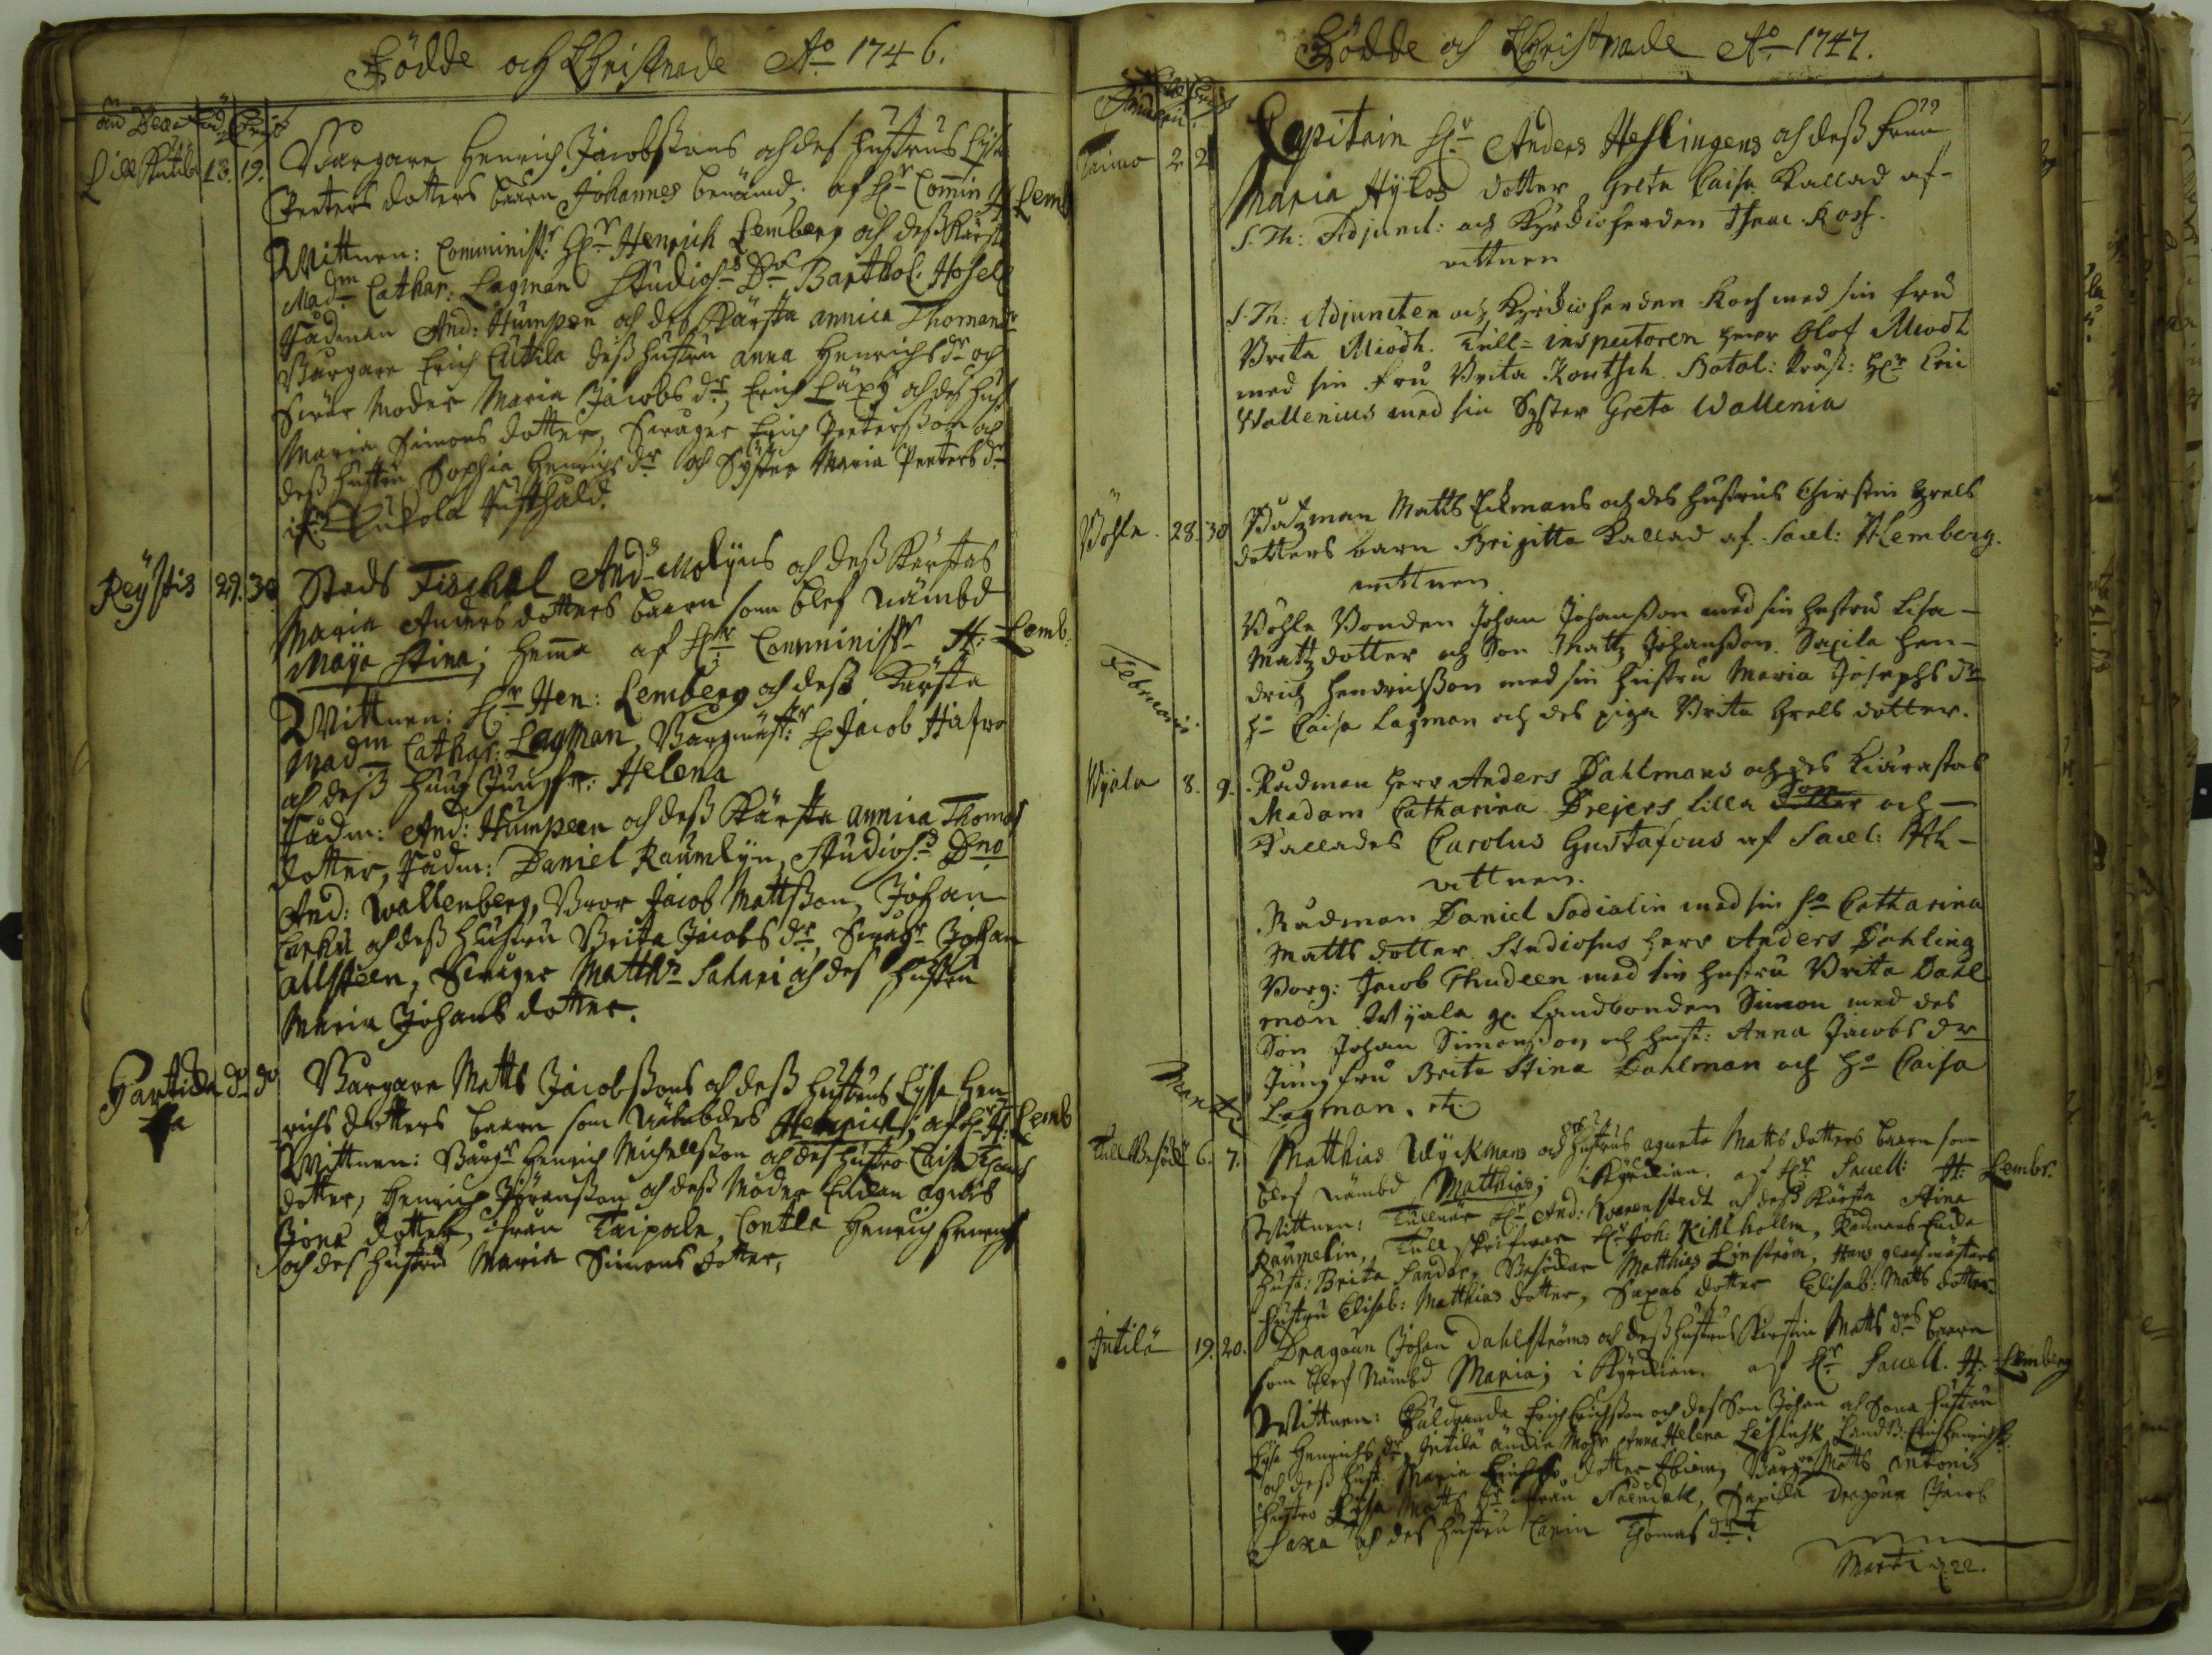 Födde och Christnade Ao 1746.
Lill Kutila 13. 19. Borgare Henrich Jacobssons och des hustrus Lysa
Peeters dotters baarn Johannes benämd, af Hr Commin H Lemb
Wittnen: Comminist: Hr Henrich Lemberg och dess Kärsta
Madm Cathar: Lagman Studios Do Barthol: Hosell
Rådman And: Humpeen och des Kärsta annica Thomae dr
Burgare Erich Cuttila dess hustru anna Henrichs dr och
Swär Moder Maria Jacobs dr, Erich Läxy och des hust
Maria Simons dotter, Swåger Erich Peetersson och
dess hustru Sophia Henrichs dr och Syster Maria Peeters dr
Reÿstis 29. 30 Stads Fischal And Molÿns och dess Kärstas
Maria Anders dotters baarn som blef nämbd
Maÿa Stina; hema af Hr Comminist H: Lemb.
Wittnen: Hr Hen: Lemberg och dess Kärsta
Madm Cathar: Lagman, Borgmäst: H Jacob Hafwo
och dess Jungfr: Helena
Rådm: And: Humpeen och dess Kärsta annica Thomas
dotter, Rådm: Daniel Raumlÿn, Studios Dno
And: Wallenberg, Bror Jacob Mattsson, Johan
Carku och dess hustru Brita Jacobs dr, Swåger Johan
allsteen, Swåger Matth Sahari och des hustru
Maria Johans dotter.
Hartikka do do Borgare Matts Jacobssons och dess hustrus Lysa Hen
richs dotters baarn som nämbdes Henrich; af Hr H: Lemb
Wittnen: Borgr Henrich Michellsson och des hustro Caisa Thomas
dotter, Henrich Jöransson och dess Moder Enkan agnes
Jöns dotter, ifrån Taipale, Contla Henrich Henrichs
och des hustru Maria Simons dotter,
Födde och Christnade Ao 1747.
Taimo 2 2 Capitain Hr Anders Heslingens och dess Fruu
Maria Hÿlos dotter Greta Caisa kallad af
S. Th: Adjunct: och Kyrckioherden Isaac Ross.
vittnen
S. Th: Adjuncten och Kyrckioherden Koch med sin fru
Brita Miödh. Tull-inspectoren herr Olof Miödh
med sin fru Brita Kontsch. Batal: Präst: Hr Eric
Wallenius med sin Syster Greta Wallenia
Böhle. 28. 30 Båtzman Matts Eckmans och des hustrus Christin Grels
dotters barn Brigitta kallad af Sacel: H Lemberg.
vittnen
Böhle Bonden Johan Johansson med sin hustru Lisa
Mattz dotter och Son Mattz Johansson. Saxila Hen-
drich Hendrichsson med sin hustru Maria Josephs dr
Caisa Lagman och des piga Brita Grels dotter.
Februarii
Wÿala 8. 9. Rådman herr Anders Dahlmans och des kiärastas
Madam Catharina Drejers lilla dotter Son och
kallades Carolus Gustafvus af Sacel: H L
vittnen.
Rådman Daniel Sodialin med sin fru Catharina
Matts dotter. Studiosus herr Anders Dahling
Borg: Jacob Thudeen med sin hustru Brita Dahl
man. Wÿala Landbonden Simon med des
Son Johan Simonsson och hust: Anna Jacobs dr
Jungfru Brita Stina Dahlman och Caisa
Lagman. etc
Martii
Tull Besök 6. 7. Matthias Wÿckmans och hustrus agneta Matts dotters baarn som
blef nämbd Matthias; i Kyrckian. af Hr Sacell: H: Lembr.
Wittnen: Tullnär Hr And: Warenstedt och dess Kärsta Stina
Raumelin, Tull Skrifware Hr Joh: Kihlholm, Rådmans Enka
hust: Brita Sandar, Besökar Matthias Linström, Hans glasmästars
hustru Elisab: Matthias dotter, Sexas dotter Elisab: Matts dotter
Intilä 19. 20. Dragoun Johan Dahlströms och dess hustrus Kirstin Matts drs baarn
som blef nämbd Maria; i Kyrckian. af Hr Sacell. H. Lemberg
Wittnen: Erich Erichsson och des Son Johan och Sona hustru
Lysa Henrichs dr, Intilä Anna Helena
och dess hust: Maria dotter Borgr Matts Antonis
hustro Lysa Matts dr ifrån Nåendahl, Dragoun Jacob
Saxa och des hustru Carin Thomas dr.
Martii d. 22.